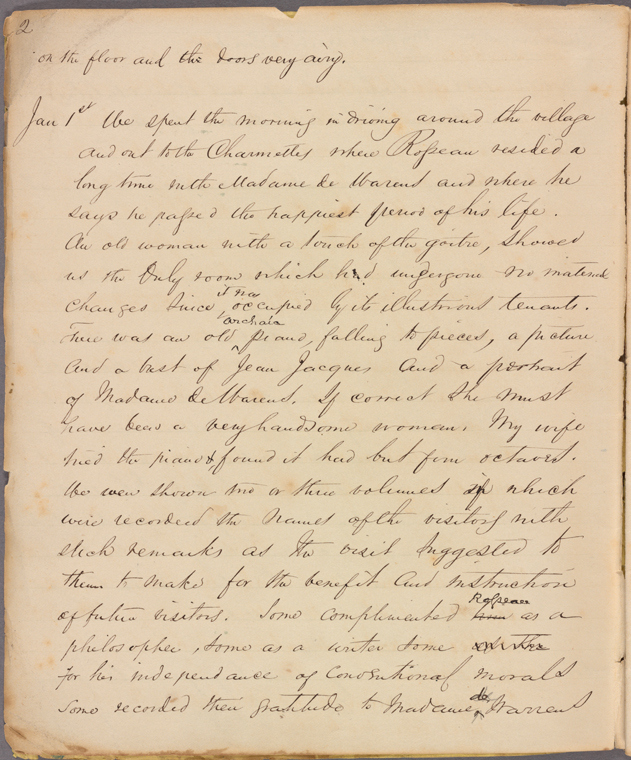 2
on the floor and the doors very airy.
Jan 1st We spent the morning in driving around the village
and out to the Charmettes where Rosseau resided a
long time with Madame de Warens and where he
says he passed the happiest period of his life.
An old woman with a touch of the goitre, showed
us the only room which had undergone no material
changes since it was occupied by its illustrious tenants.
There was an old archaic piano, falling to pieces, a picture
and a bust of Jean Jacques and a portrait
of Madame de Warens. If correct she must
have been a very handsome woman. My wife
tried the piano & found it had but four octaves.
We were shown two or three volumes in which
were recorded the names of the visitors with
such remarks as the visit suggested to
them to make for the benefit and instruction
of future visitors. Some complimented Rosseau as a
philosopher, some as a writer some
for his independance of conventional morals
Some recorded their gratitude to Madame de Warrens